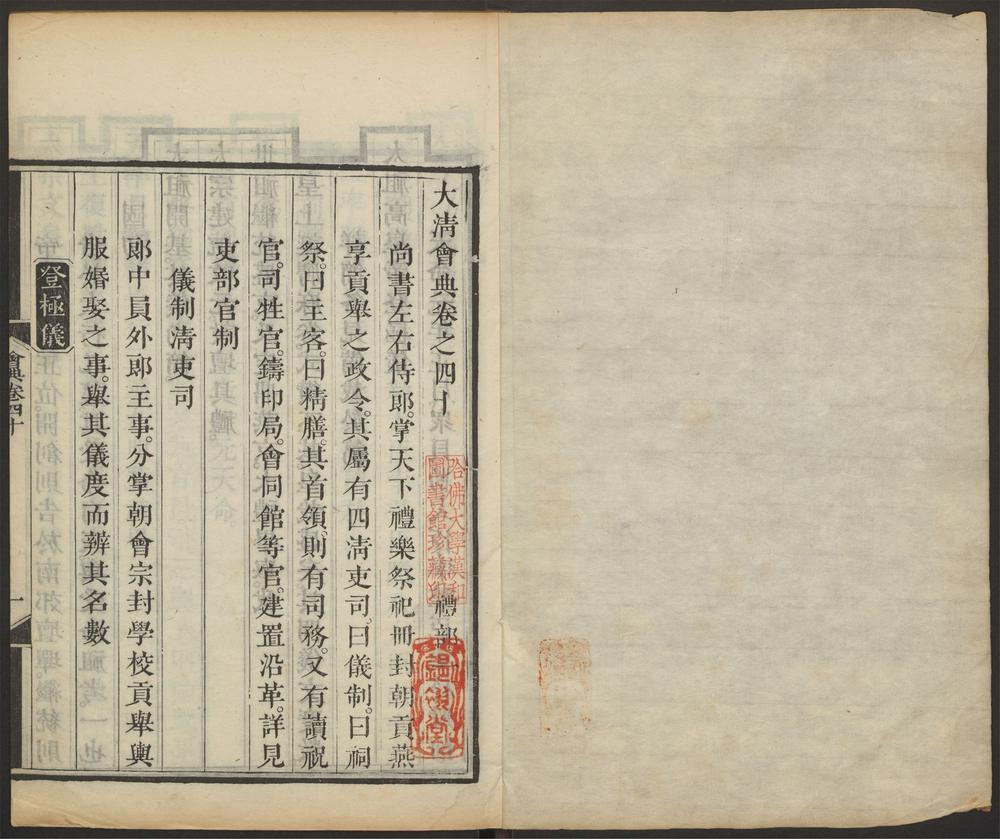 大清會典卷之四十
禮部一
尚書左右侍郎。掌天下禮樂祭祀冊封朝貢燕
享貢舉之政令。其屬有四清吏司。曰儀制。曰祠
祭。曰主客。曰精膳。其首領。則有司務。又有讀祝
官。司牲官。鑄印局。會同館等官。建置沿革。詳見
吏部官制
儀制清吏司
郎中員外郎主事。分掌朝會宗封學校貢舉輿
服婚娶之事。舉其儀度而辨其名數
登極儀
會典卷四十
一
哈佛大學漢和
圖書館珍藏印